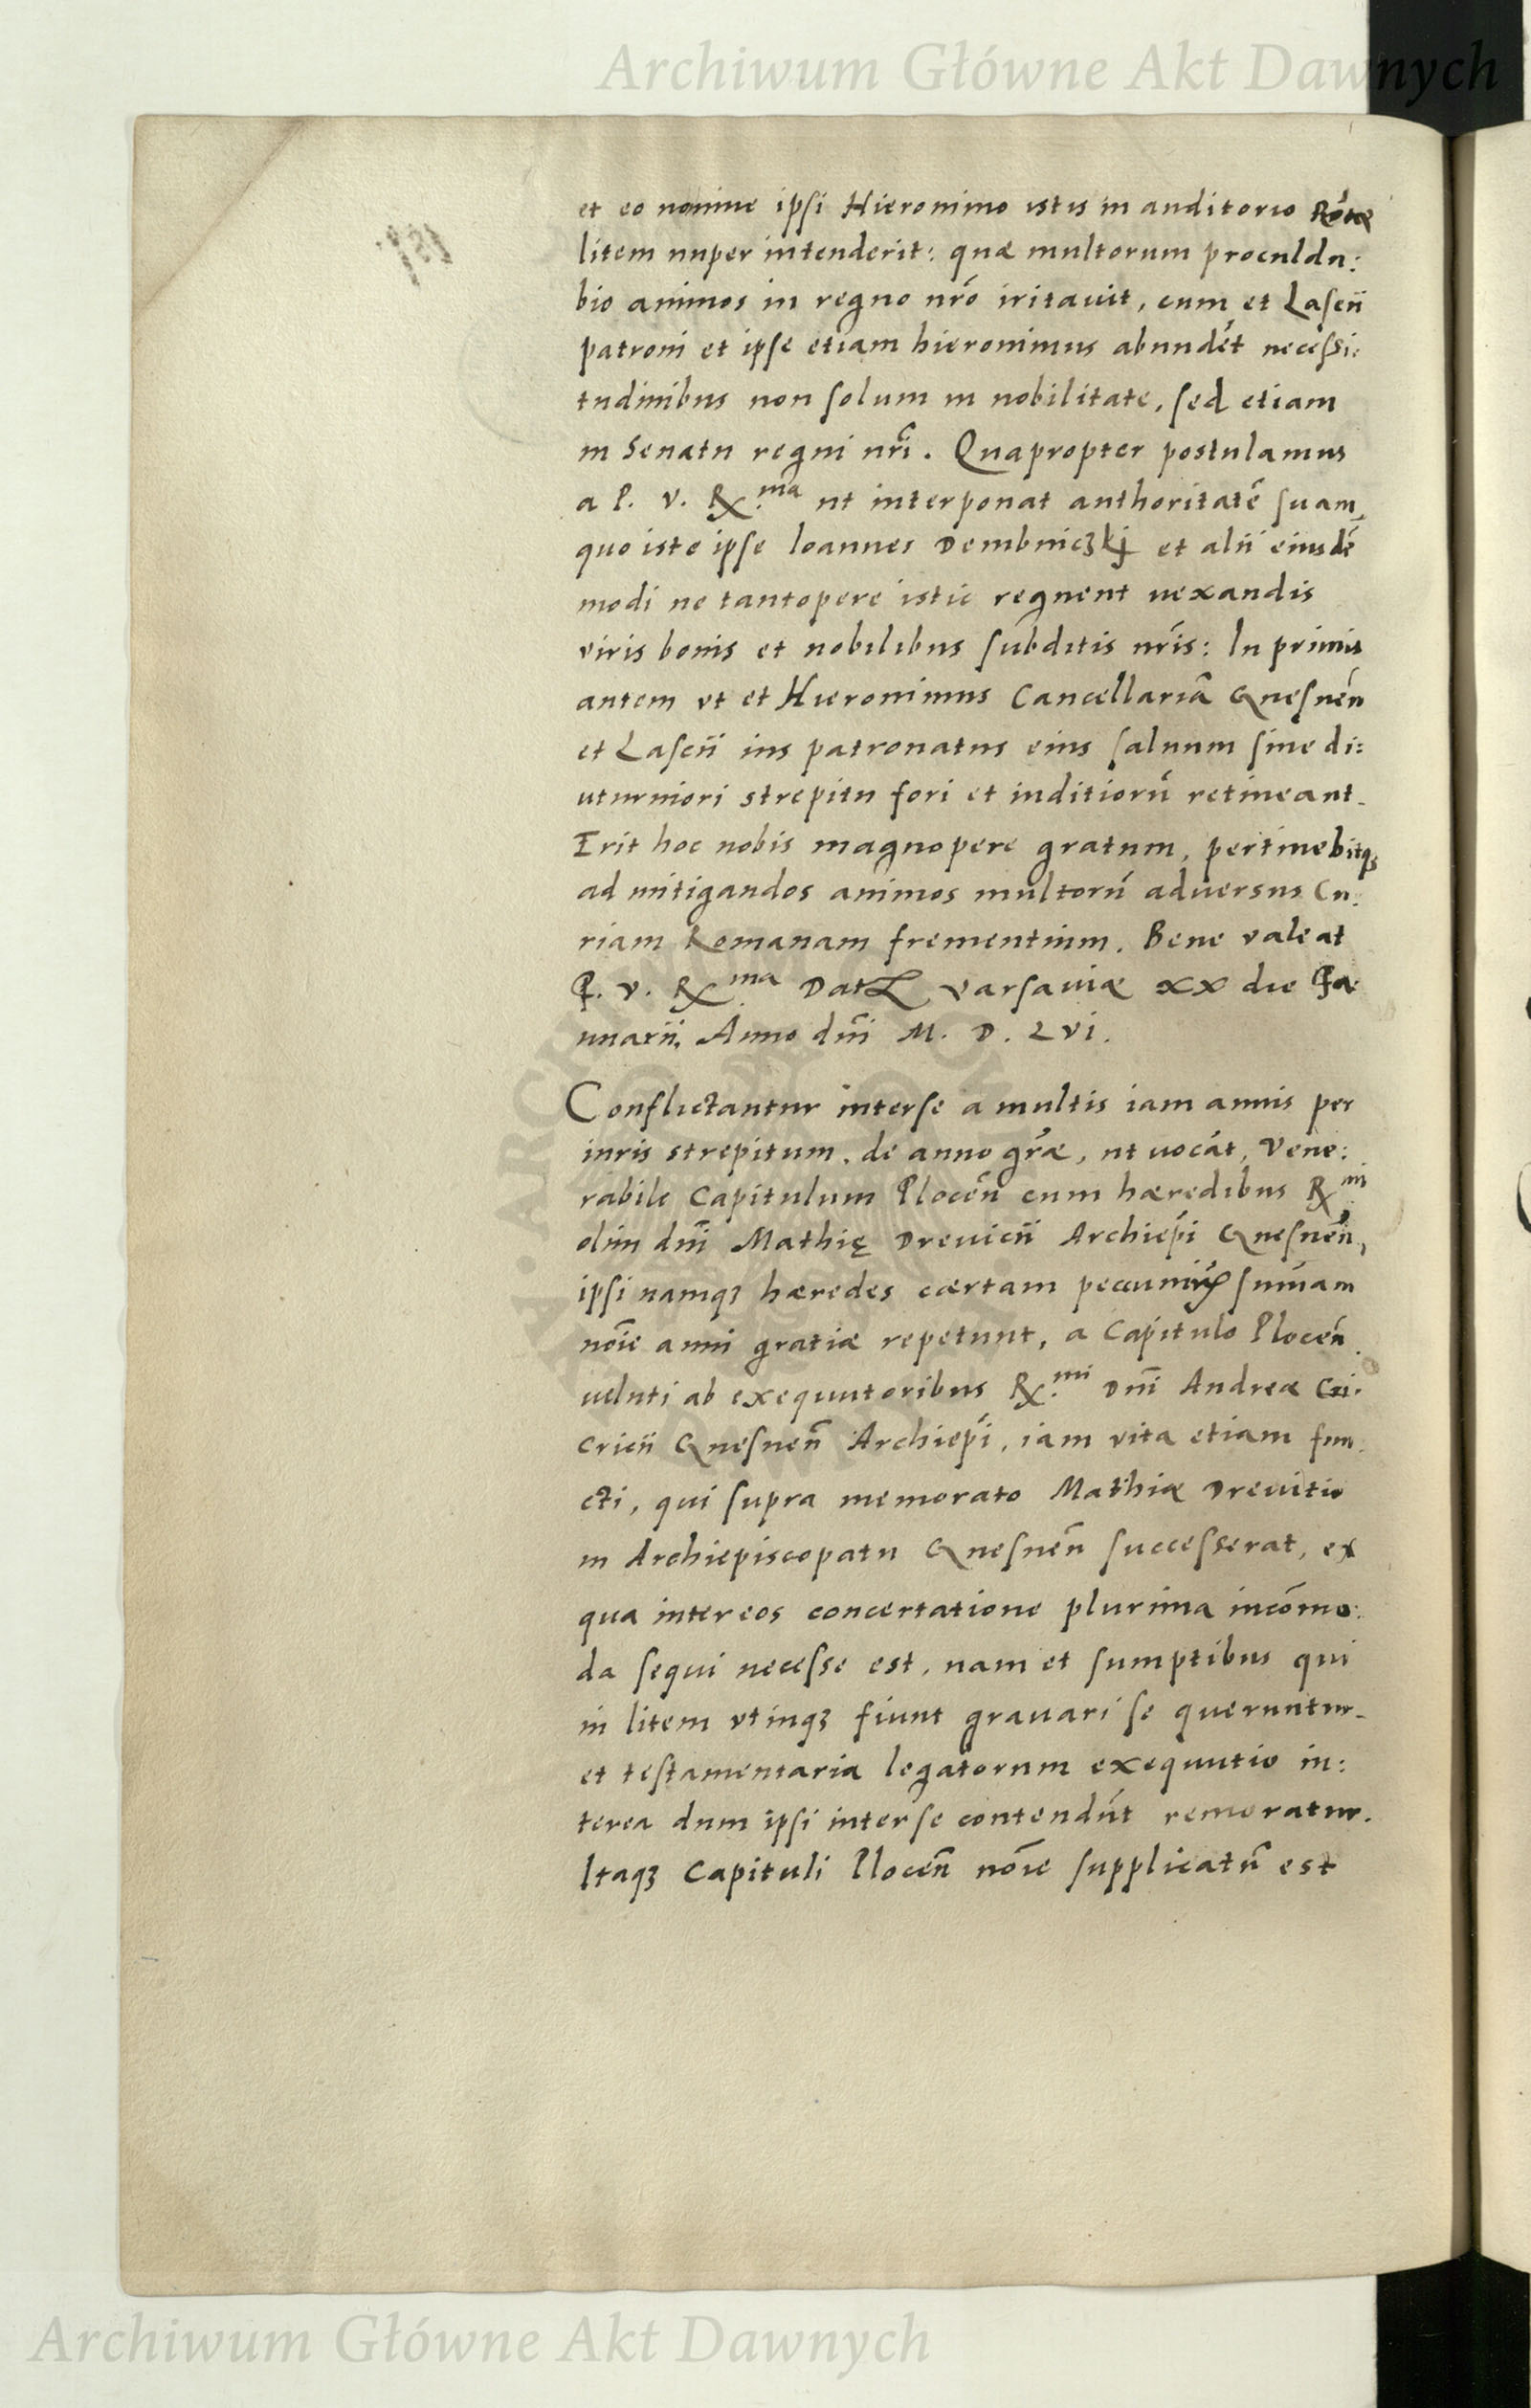 Archiwum Główne Akt Dawnych
et eo nomine ipsi Hieronimo istis in auditorio Rotæ
litem nuper intenderit: quæ multorum proculdu:
bio animos in regno nro iritavit, cum et Lascii
patroni et ipse etiam hieronimus abundēt necessi:
tudinibus non solum in nobilitate, sed etiam
in Senatu regni nri. Quapropter postulamus
a P. V. R.ma ut interponat authoritatē suam,
quo iste ipse Ioannes Dembniczkj et alii eiusdē
modi ne tantopere istic regnent vexandis
viris bonis et nobilibus subditis nris: In primis
autem vt et Hieronimus Cancellariā Gnesnen
et Lascii ius patronatus eius saluum sine di:
uturniori strepitu fori et iuditiorū retineant.
Erit hoc nobis magnopere gratum, pertinebitq3
ad mitigandos animos multorū adversus Cu:
riam Romanam frementium. Bene valeat
P. V. R.ma Dat Varsaviæ XX die Ja
nuarii, Anno dni M. D. LVI.
Conflictantur interse a multis iam annis per
iuris strepitum, de anno græ, ut vocāt, Vene:
rabile Capitulum Plocen cum hæredibus R.mi
olim dni Mathię Drevicii Archiepi Gnesnen,
ipsi namq3 hæredes cærtam summam
noie anni gratiæ repetunt, a Capitulo Plocen
veluti ab exequutoribus R.mi Dni Andreæ Cri:
cricii Gnesnen Archiepi, iam vita etiam fun:
cti, qui supra memorato Mathiæ Drevitio
in Archiepiscopatu Gnesnen successerat, ex
qua intereos concertatione plurima incōmo:
da sequi necesse est, nam et sumptibus qui
in litem vtinq3 fiunt gravari se queruntur.
et testamentaria legatorum exequutio in:
terea dum ipsi inter se contendūt remoratur.
Itaq3 Capituli Plocen noie supplicatū est
Archiwum Główne Akt Dawnych